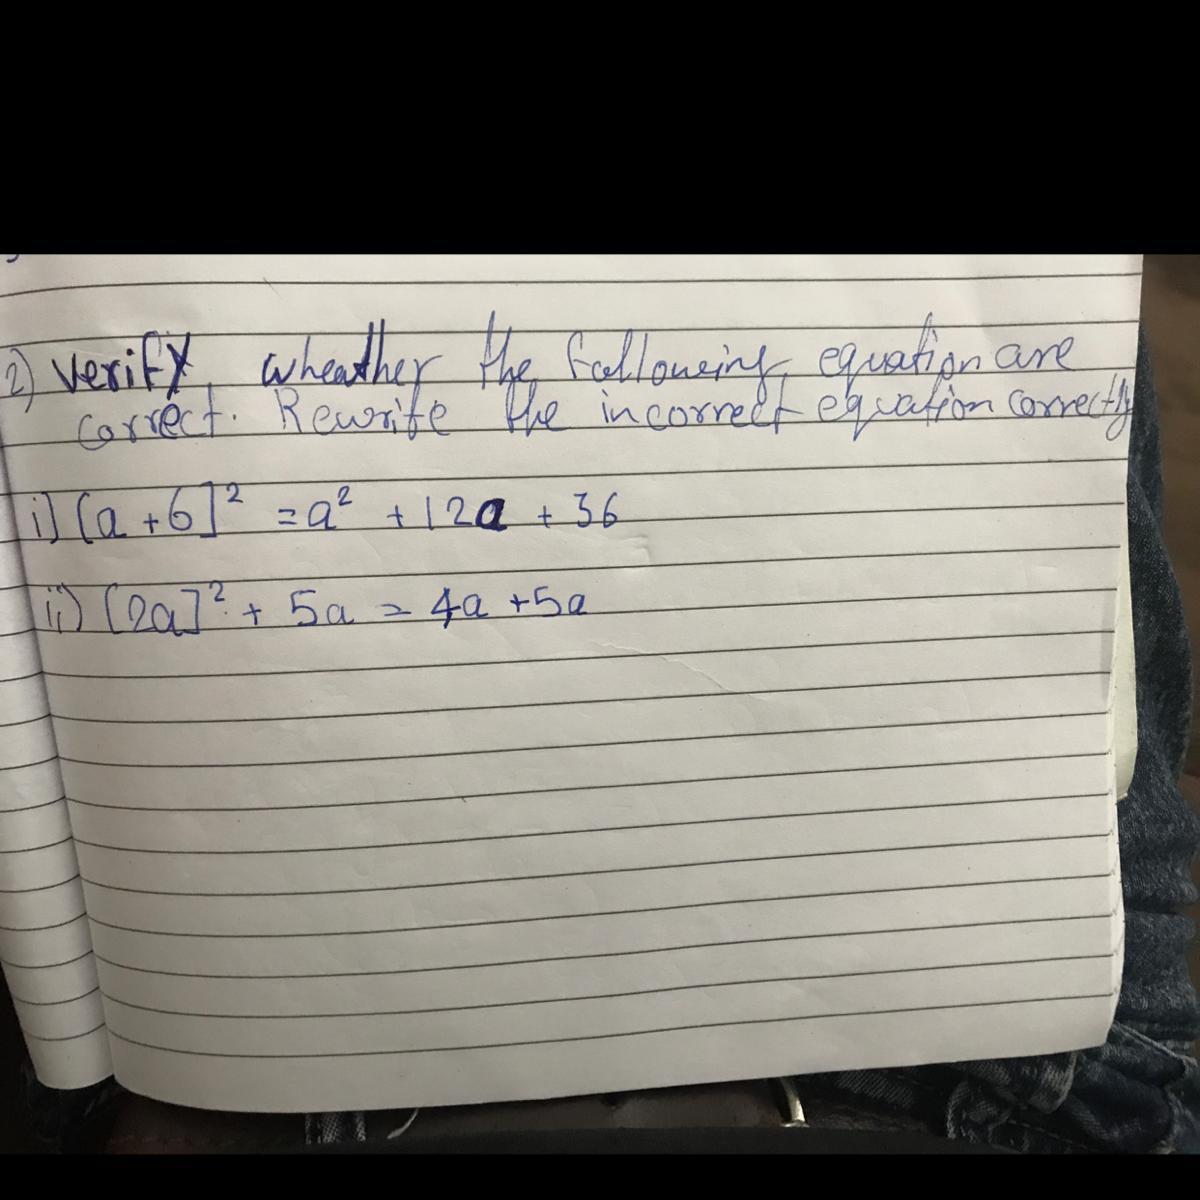 2) Verify wheather the followeing equation are
correct. Rewrite the incorrect equation correctly
i) [a + 6]² = a² + 12a + 36
ii) [2a]² + 5a = 4a + 5a